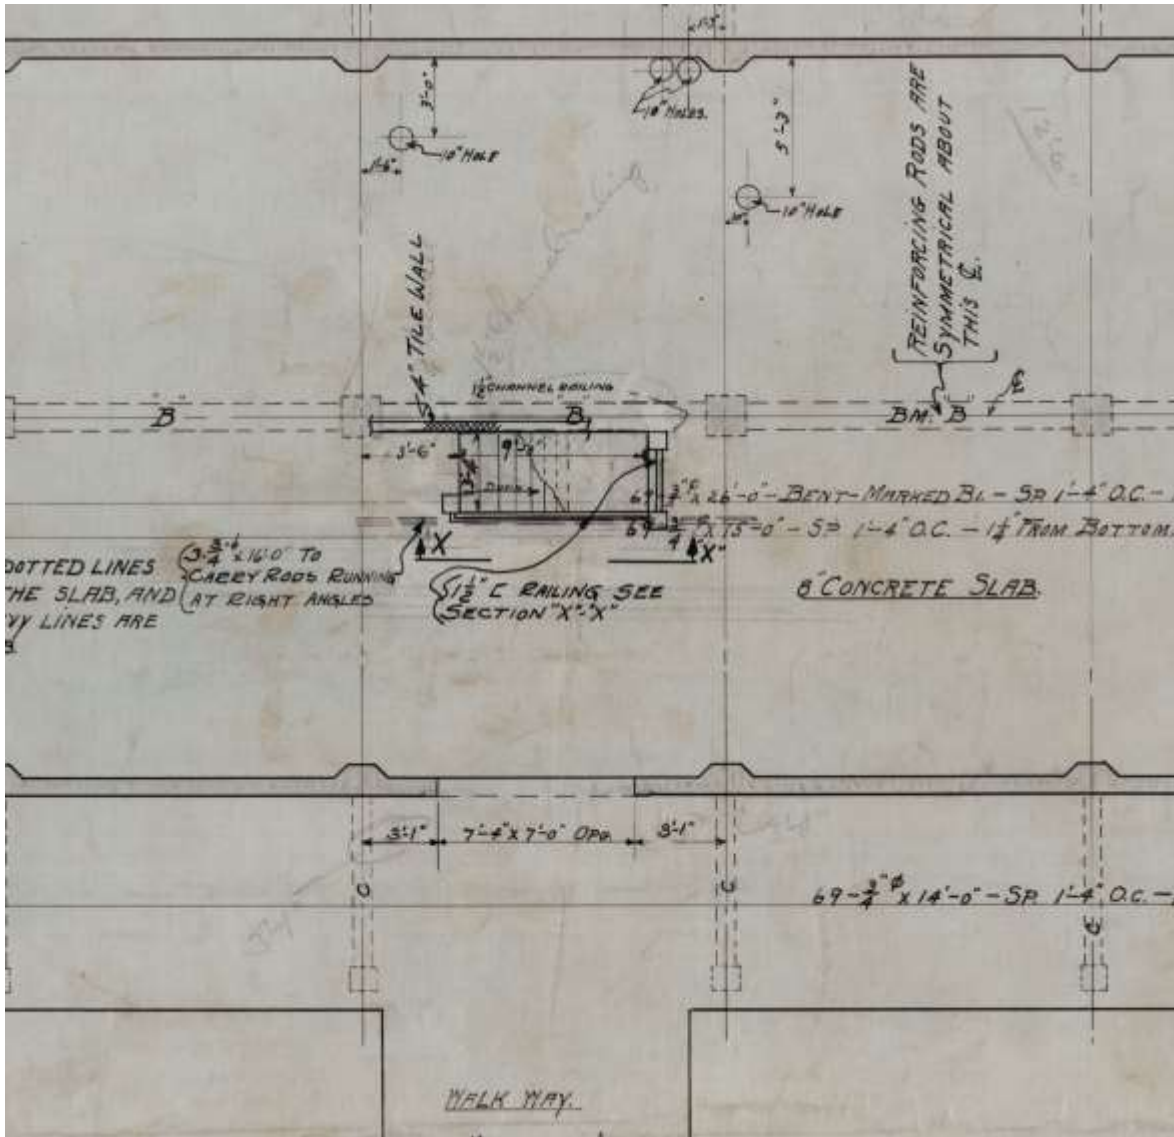 1'-3"
3'-0"
10" HOLES.
10" HOLE
1'-6"
5'-3"
10" HOLE
REINFORCING RODS ARE
SYMMETRICAL ABOUT
THIS ℄.
12'6"
4" TILE WALL
1½" CHANNEL RAILING
"B"
"B"
BM. "B"
℄
3'-6"
DOWN
69-¾"ϕ x 26'-0" - BENT - MARKED B1. - SP. 1'-4" O.C. -
69-¾"ϕ x 15'-0" - SP. 1'-4" O.C. - 1¼" FROM BOTTOM.
X
"X"
DOTTED LINES
THE SLAB, AND
VY LINES ARE
3-¾"ϕ x 16'-0" TO
CARRY RODS RUNNING
AT RIGHT ANGLES
1½" C RAILING SEE
SECTION "X"-"X"
8" CONCRETE SLAB.
3'-1"
7'-4" x 7'-0" OPG.
3'-1"
C
C
C
69-¾"ϕ x 14'-0" - SP. 1'-4" O.C. -
WALK WAY.